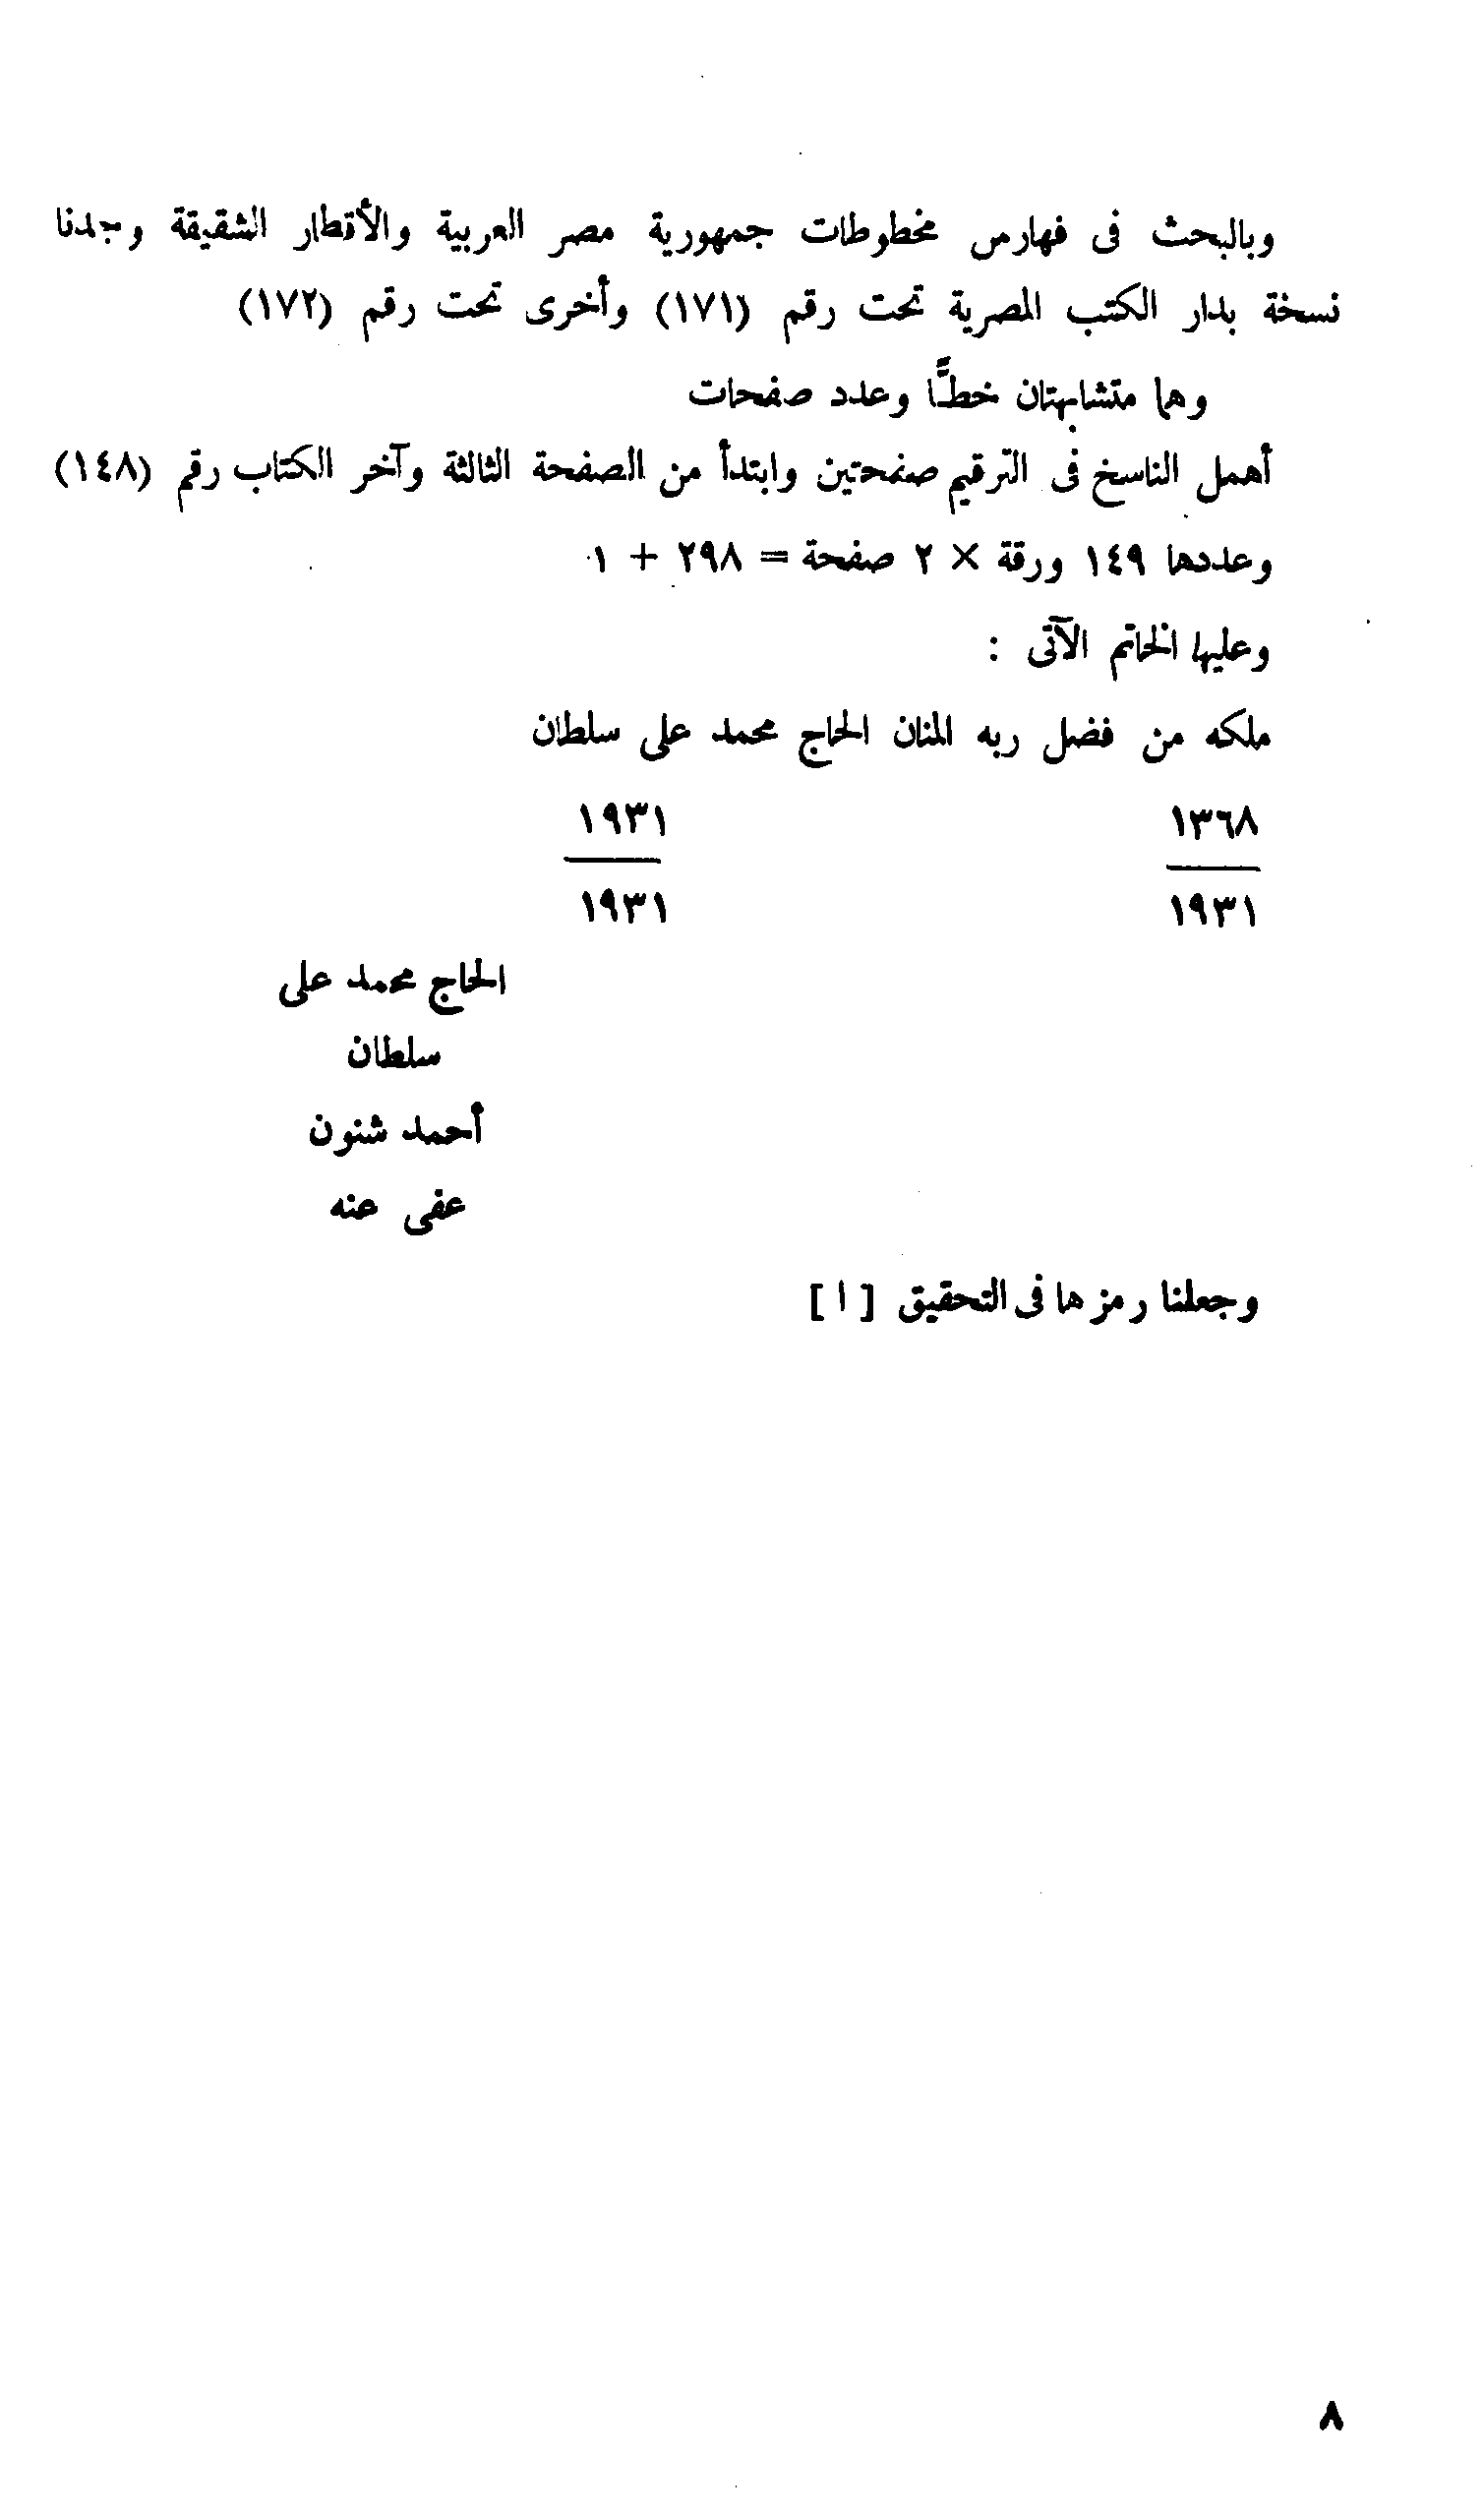 وبالبحث فى فهارس مخطوطات جمهورية مصر العربية والأقطار الشقيقة وجدنا
نسخة بدار الكتب المصرية تحت رقم (١٧١) وأخرى تحت رقم (١٧٢)
وهما متشابهتان خطًّا وعدد صفحات
أهمل الناسخ فى الترقيم صفحتين وابتدأ من الصفحة الثالثة وآخر الكتاب رقم (١٤٨)
وعددها ١٤٩ ورقة × ٢ صفحة = ٢٩٨ + ١
وعليها الخاتم الآتى :
ملكه من فضل ربه المنان الحاج محمد على سلطان
١٣٦٨ ١٩٣١
١٩٣١ ١٩٣١
الحاج محمد على
سلطان
أحمد شنون
عفى عنه
وجعلنا رمزها فى التحقيق [ ا ]
٨